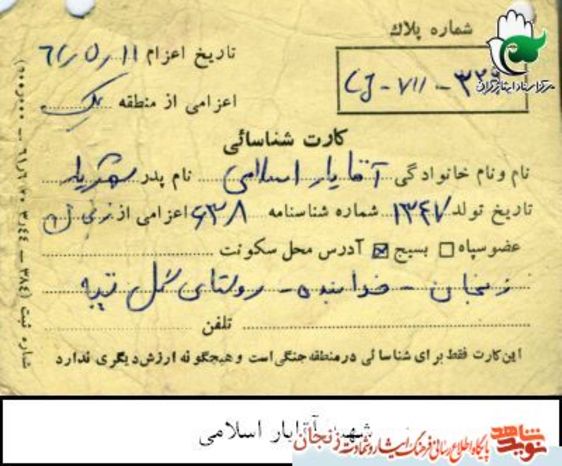 شماره پلاك
تاریخ اعزام ۶۲/۵/۱۱
اعزامی از منطقه یک
مرکز اسناد ایثارگران
کارت شناسائی
نام و نام خانوادگی آقایار اسلامی نام پدر شهریار
تاریخ تولد ۱۳۴۷ شماره شناسنامه ۶۳۸ اعزامی از
عضو سپاه □ بسیج ☒ آدرس محل سکونت
زنجان - خدابنده - روستای گل تپه
تلفن
این کارت فقط برای شناسائی در منطقه جنگی است و هیچگونه ارزش دیگری ندارد
شهید آقایار اسلامی
نوید شاهد
پایگاه اطلاع رسانی فرهنگ ایثار و شهادت زنجان